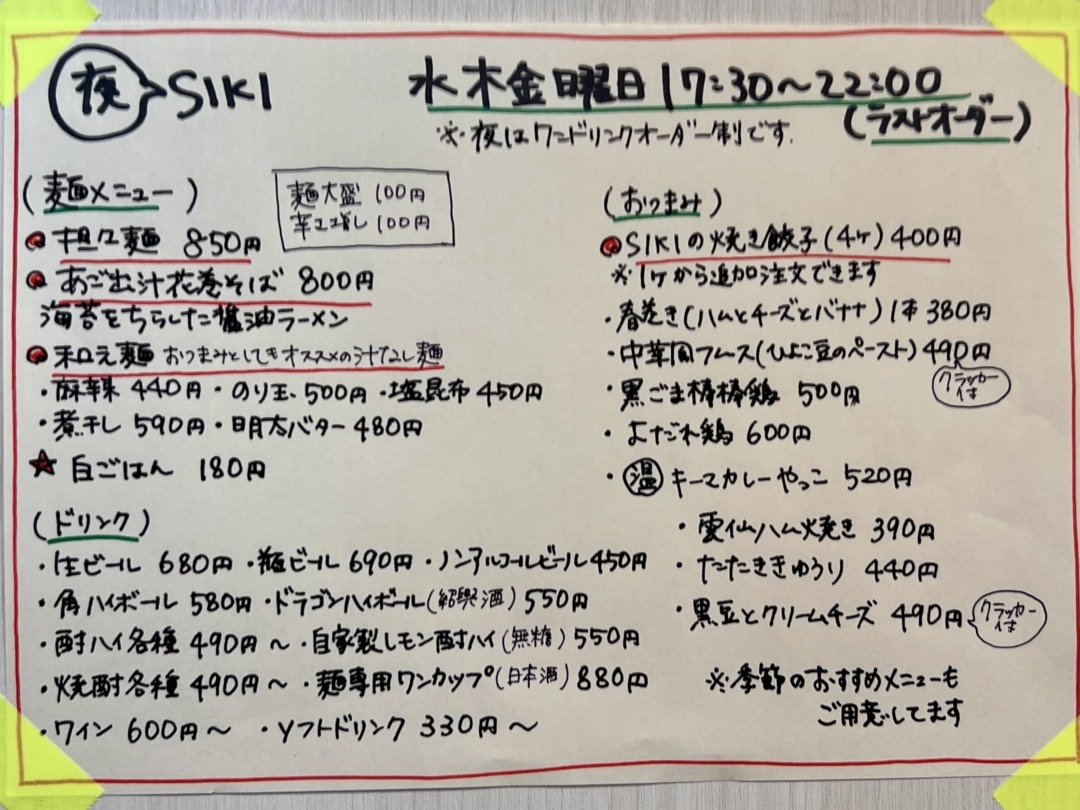 夜 SIKI 水木金日曜日 17:30～22:00
(ラストオーダー)
※夜はワンドリンクオーダー制です.
(麺メニュー)
麺大盛 100円
辛さ増し 100円
担々麺 850円
あご出汁花巻そば 800円
海苔をちらした醤油ラーメン
和え麺 おつまみとしてもオススメの汁なし麺
・麻辣 440円・のり玉 500円・塩昆布 450円
・煮干し 590円・明太バター 480円
★ 白ごはん 180円
(ドリンク)
・生ビール 680円・瓶ビール 690円・ノンアルコールビール 450円
・角ハイボール 580円・ドラゴンハイボール(紹興酒) 550円
・酎ハイ各種 490円～・自家製レモン酎ハイ(無糖) 550円
・焼酎各種 490円～・麺専用ワンカップ(日本酒) 880円
・ワイン 600円～・ソフトドリンク 330円～
(おつまみ)
SIKIの焼き餃子(4ケ) 400円
※1ケから追加注文できます
・春巻き(ハムとチーズとバナナ) 1本 380円
・中華風フムス(ひよこ豆のペースト) 490円
クラッカー
付
・黒ごま棒棒鶏 500円
・よだれ鶏 600円
・温 キーマカレーやっこ 520円
・雲仙ハム焼き 390円
・たたききゅうり 440円
・黒豆とクリームチーズ 490円
クラッカー
付
※季節のおすすめメニューも
ご用意してます